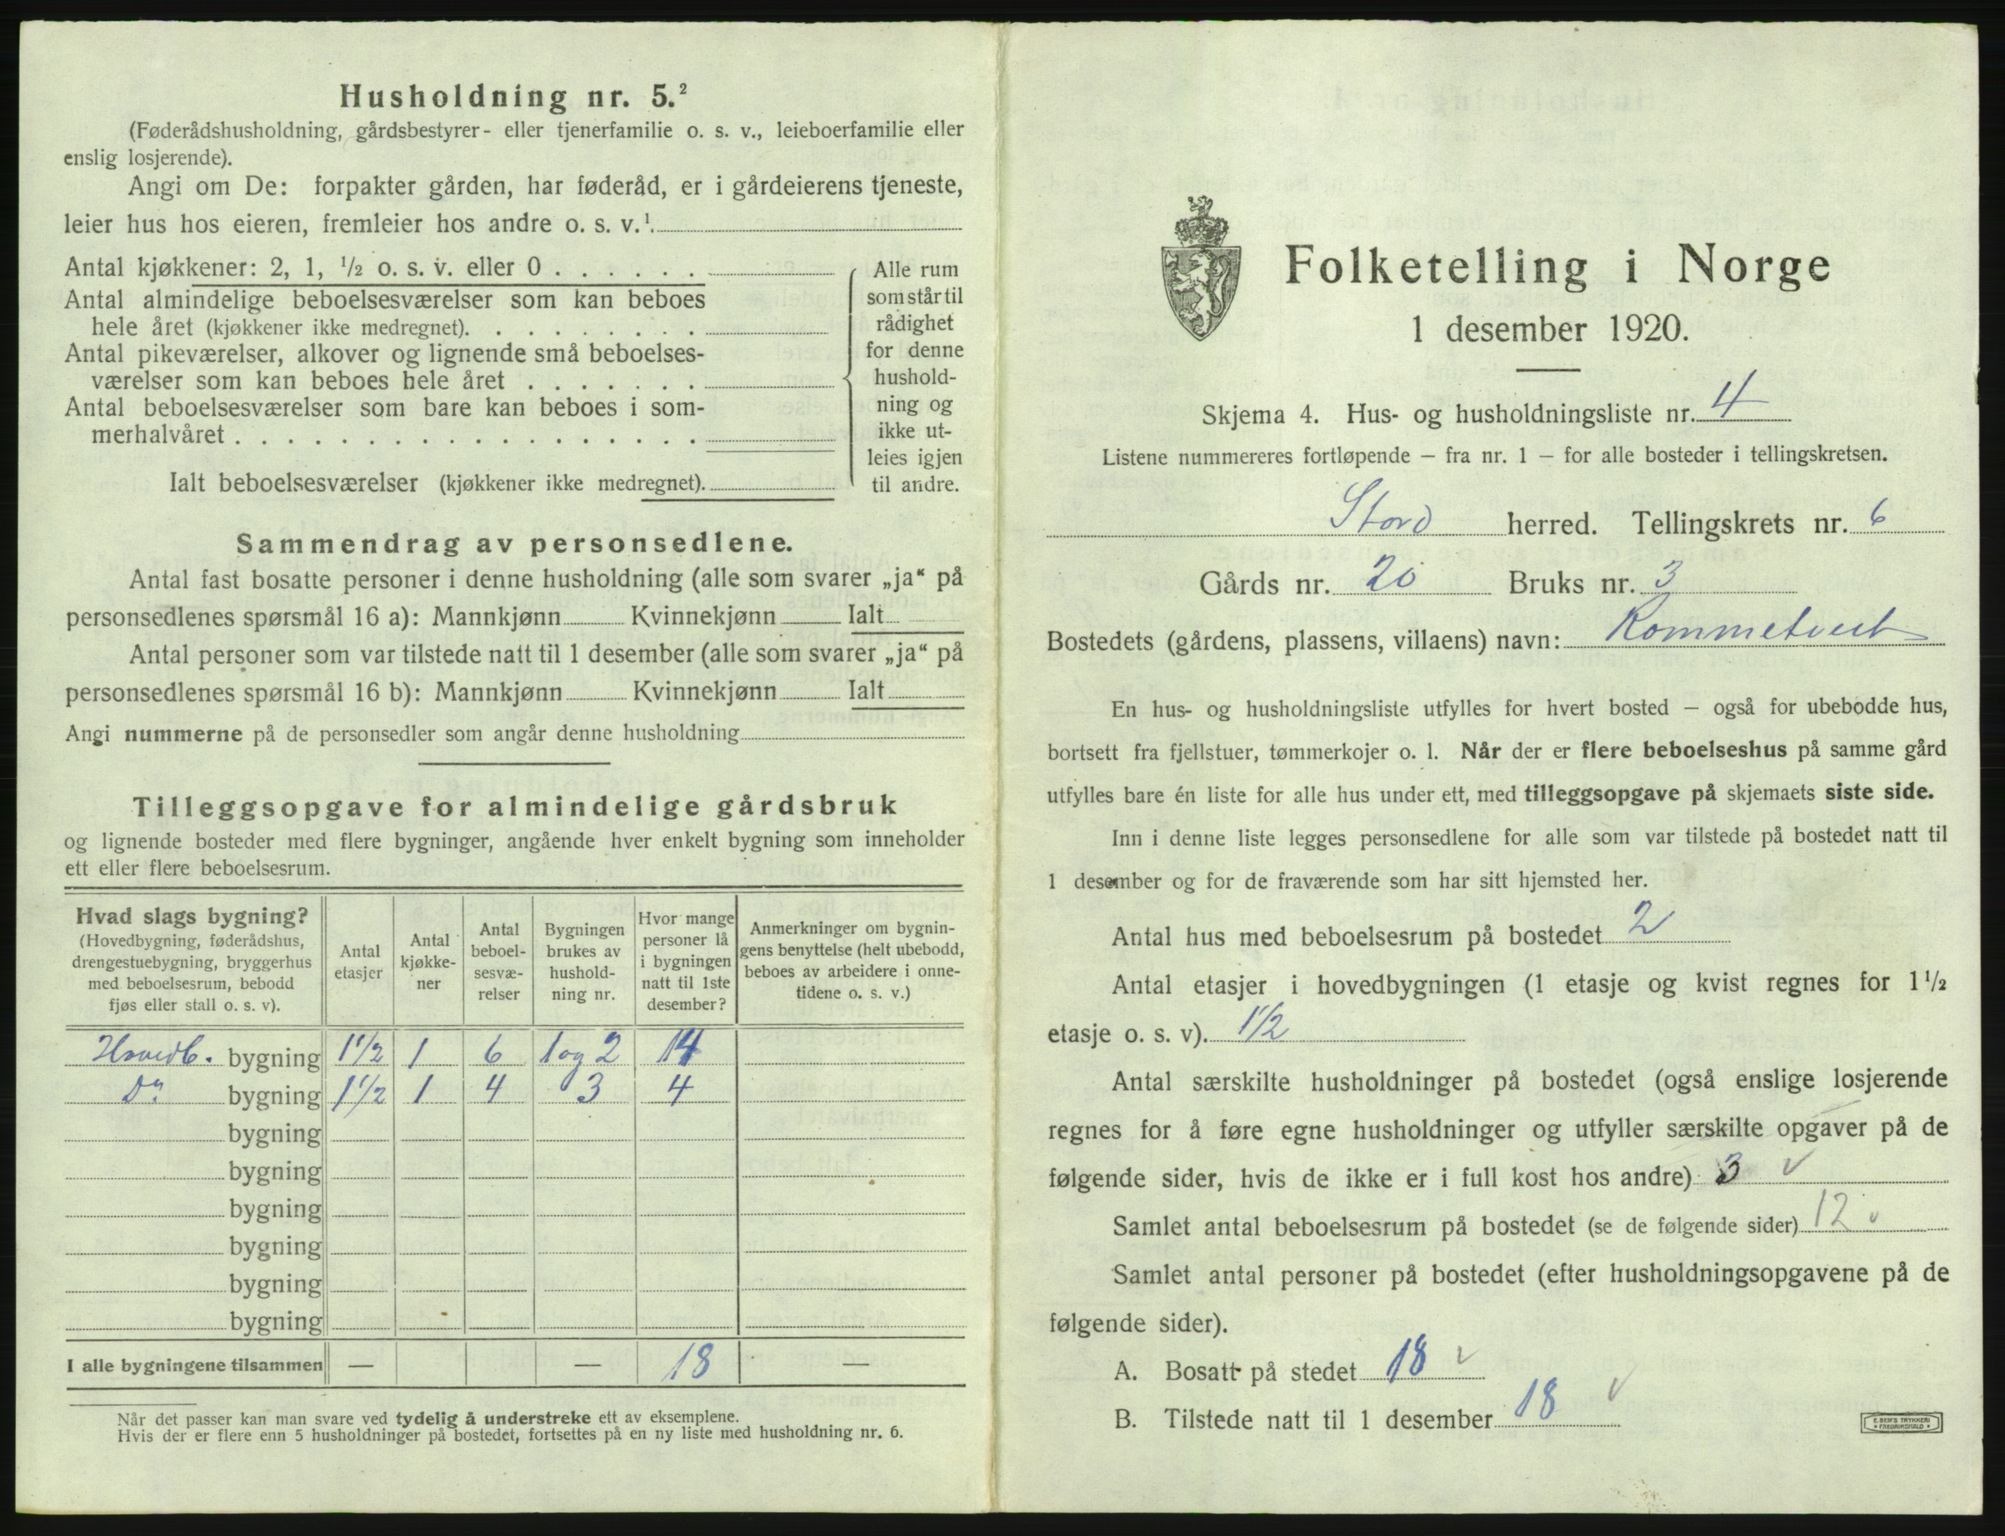 Husholdning nr. 5.²
(Føderådshusholdning, gårdsbestyrer- eller tjenerfamilie o. s. v., leieboerfamilie eller
enslig losjerende).
Angi om De: forpakter gården, har føderåd, er i gårdeierens tjeneste,
leier hus hos eieren, fremleier hos andre o. s. v.¹.
Antal kjøkkener: 2, 1, ½ o. s. v. eller 0 . . . . . .
Antal almindelige beboelsesværelser som kan beboes
hele året (kjøkkener ikke medregnet). . . . . . . . .
Antal pikeværelser, alkover og lignende små beboelses-
værelser som kan beboes hele året . . . . . . .
Antal beboelsesværelser som bare kan beboes i som-
merhalvåret . . . . . . . . . . . . . . . . . .
Ialt beboelsesværelser (kjøkkener ikke medregnet).
Alle rum
som står til
rådighet
for denne
hushold-
ning og
ikke ut-
leies igjen
til andre.
Sammendrag av personsedlene.
Antal fast bosatte personer i denne husholdning (alle som svarer „ja“ på
personsedlenes spørsmål 16 a): Mannkjønn Kvinnekjønn Ialt
Antal personer som var tilstede natt til 1 desember (alle som svarer „ja“ på
personsedlenes spørsmål 16 b): Mannkjønn Kvinnekjønn Ialt
Angi nummerne på de personsedler som angår denne husholdning
Tilleggsopgave for almindelige gårdsbruk
og lignende bosteder med flere bygninger, angående hver enkelt bygning som inneholder
ett eller flere beboelsesrum.
Hvad slags bygning?
(Hovedbygning, føderådshus,
drengestuebygning, bryggerhus
med beboelsesrum, bebodd
fjøs eller stall o. s. v).
Antal
etasjer
Antal
kjøkke-
ner
Antal
beboel-
sesvæ-
relser
Bygningen
brukes av
hushold-
ning nr.
Hvor mange
personer lå
i bygningen
natt til 1ste
desember?
Anmerkninger om bygnin-
gens benyttelse (helt ubebodd,
beboes av arbeidere i onne-
tidene o. s. v.)
Hovedb. bygning 1½ 1 6 1 og 2 14
Do bygning 1½ 1 4 3 4
bygning
bygning
bygning
bygning
bygning
bygning
I alle bygningene tilsammen — — 18 —
Når det passer kan man svare ved tydelig å understreke ett av eksemplene.
Hvis der er flere enn 5 husholdninger på bostedet, fortsettes på en ny liste med husholdning nr. 6.
Folketelling i Norge
1 desember 1920.
Skjema 4. Hus- og husholdningsliste nr. 4
Listene nummereres fortløpende — fra nr. 1 — for alle bosteder i tellingskretsen.
Stord herred. Tellingskrets nr. 6
Gårds nr. 20 Bruks nr. 3
Bostedets (gårdens, plassens, villaens) navn: Rommetveit
En hus- og husholdningsliste utfylles for hvert bosted — også for ubebodde hus,
bortsett fra fjellstuer, tømmerkojer o. l. Når der er flere beboelseshus på samme gård
utfylles bare én liste for alle hus under ett, med tilleggsopgave på skjemaets siste side.
Inn i denne liste legges personsedlene for alle som var tilstede på bostedet natt til
1 desember og for de fraværende som har sitt hjemsted her.
Antal hus med beboelsesrum på bostedet 2
Antal etasjer i hovedbygningen (1 etasje og kvist regnes for 1½
etasje o. s. v). 1½
Antal særskilte husholdninger på bostedet (også enslige losjerende
regnes for å føre egne husholdninger og utfyller særskilte opgaver på de
følgende sider, hvis de ikke er i full kost hos andre) 3 ✓
Samlet antal beboelsesrum på bostedet (se de følgende sider) 12 ✓
Samlet antal personer på bostedet (efter husholdningsopgavene på de
følgende sider).
A. Bosatt på stedet 18 ✓
B. Tilstede natt til 1 desember 18 ✓
E. BERFS TRYKKERI
FREDRIKSHALD